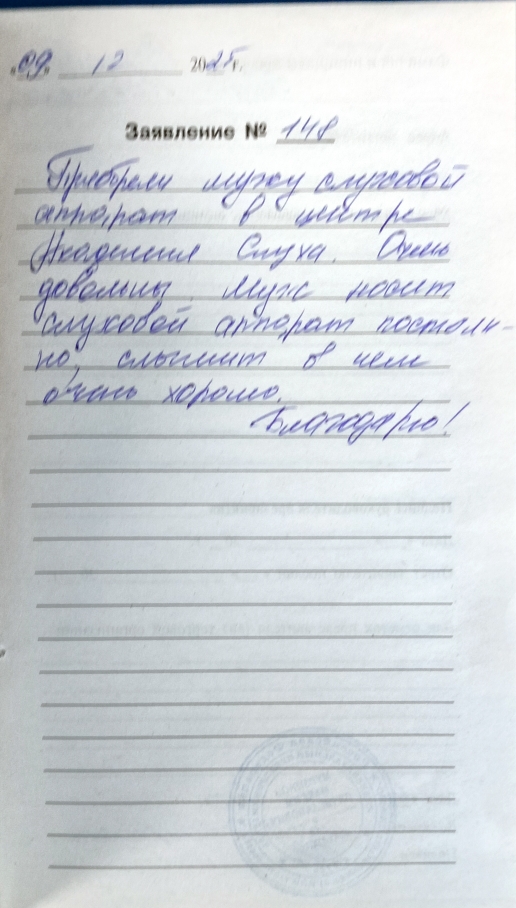 «09» 12 2025 г.
Заявление № 148
Приобрели мужу слуховой
аппарат в центре
Академия Слуха. Очень
довольны. Муж носит
слуховой аппарат постоян-
но, слышит в нем
очень хорошо.
Благодарю!